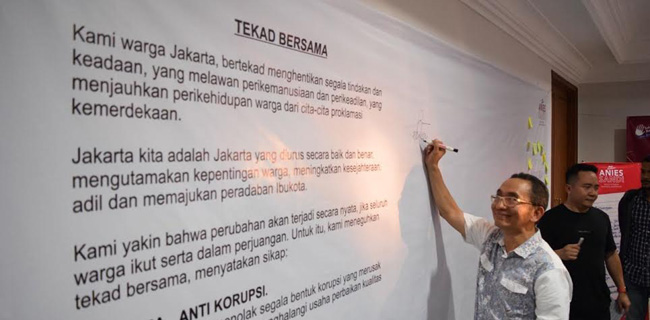 TEKAD BERSAMA
Kami warga Jakarta, bertekad menghentikan segala tindakan dan
keadaan, yang melawan perikemanusiaan dan perikeadilan, yang
menjauhkan perikehidupan warga dari cita-cita proklamasi
kemerdekaan.
Jakarta kita adalah Jakarta yang diurus secara baik dan benar,
mengutamakan kepentingan warga, meningkatkan kesejahteraan,
adil dan memajukan peradaban Ibukota.
Kami yakin bahwa perubahan akan terjadi secara nyata, jika seluruh
warga ikut serta dalam perjuangan. Untuk itu, kami meneguhkan
tekad bersama, menyatakan sikap:
ANTI KORUPSI.
segala bentuk korupsi yang merusak
usaha perbaikan kualitas
ANIES
SANDI